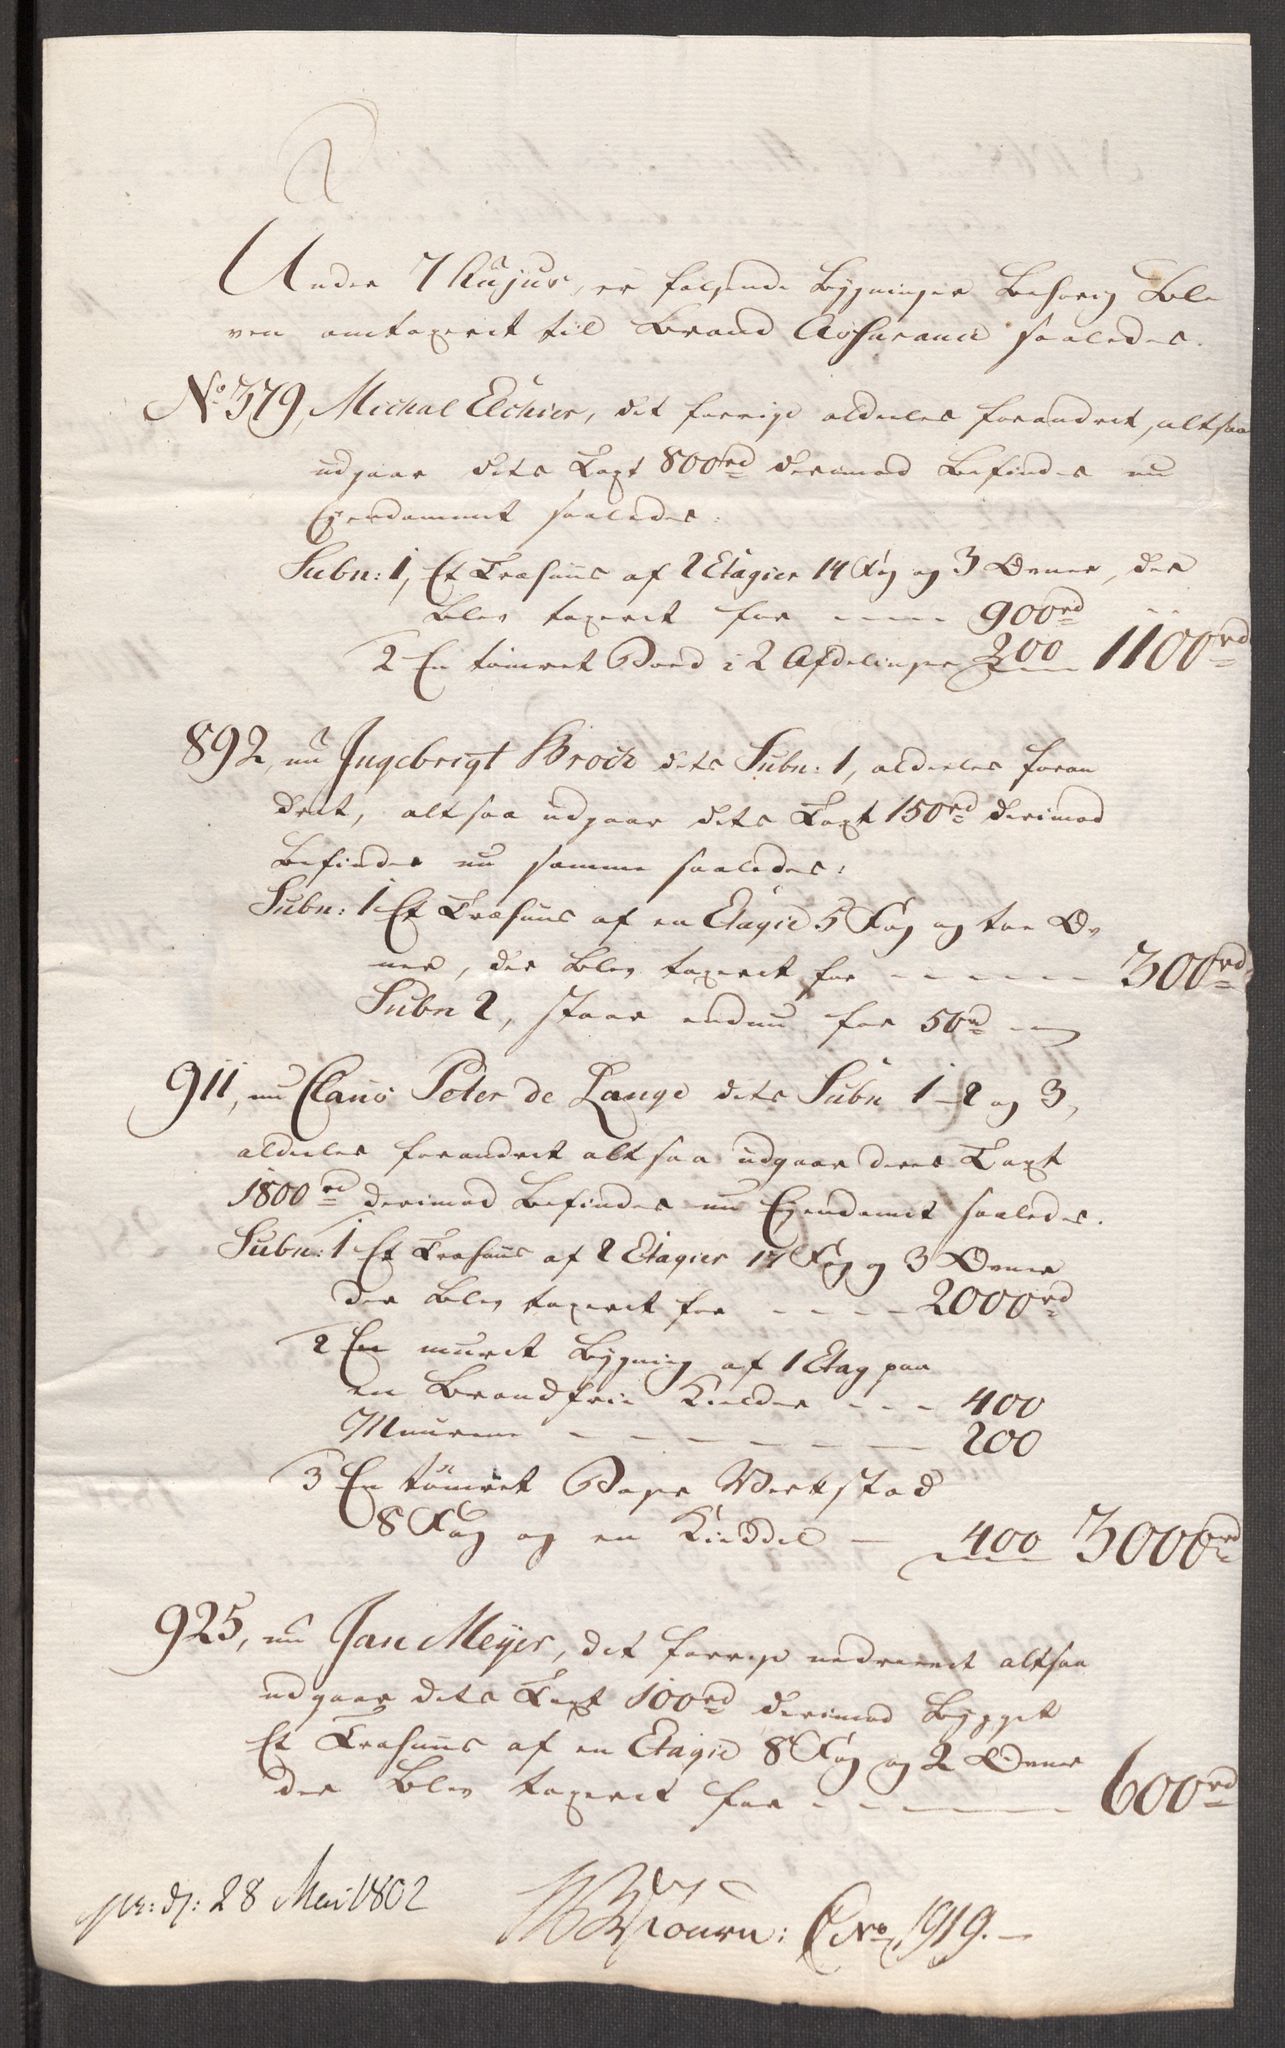 Under 7 Hujus, er følgende Bygninger Behørig Ble
ven omtaxerit til Brand Assurance saaledes.
No 379, Michal Elchier, det forrige aldeeles forandret, altsaa
udgaar dets Taxt 800rd derimod Befindes nu
Eyendommet saaledes:
Subn: 1, Et Træhuus af 2 Etagier 14 Fag og 3 Ovner, der
Blev taxerit for ---- 900rd
2 En tømret Boed i 2 Afdelinger 200 1100rd
892, nu Ingebrigt Broch dets Subn: 1, aldeeles foran
dret, altsaa udgaar dets Taxt 150rd derimod
Befindes nu samme saaledes:
Subn: 1 Et Træhuus af en Etagie 5 Fag og toe Ov
ner, der Blev taxerit for ------ 300rd
Subn 2, staar endnu for 50rd
911, nu Claus Peter de Lange dets Subn 1-2 og 3,
aldeeles forandret altsaa udgaar deres Taxt
1800rd derimod Befindes nu Eyendomet saaledes.
Subn: 1 Et Træhuus af 2 Etagier 17 Fag og 3 Ovner
der Blev taxerit for ---- 2000rd
2 En muret Bygning af 1 Etag paa
en Brandfrie Kielder --- 400
Muurene ------ 200
3 En tømret Verkstad
8 Fag og en Kieddel - 400 3000rd
925, nu Jan Meyer, det forrige nedrevet altsaa
udgaar dets Taxt 100rd derimod Bygget
Et Træhuus af en Etagie 8 Fag og 2 Ovner
der Blev taxerit for ------ 600rd
28 Mai 1802
Journ: No 1919.